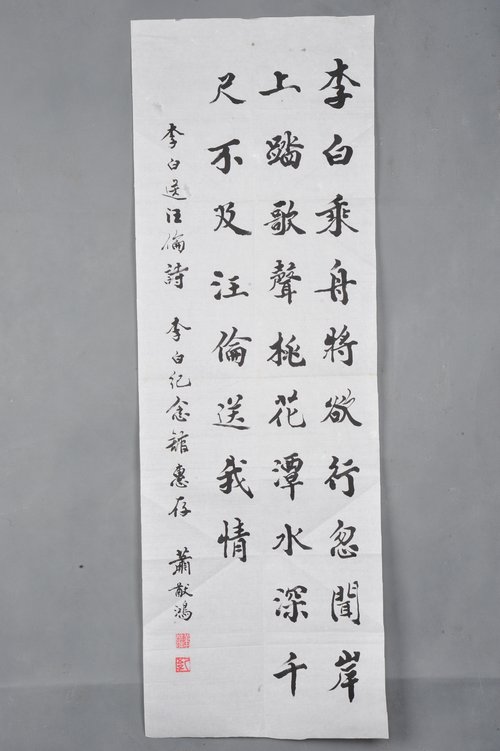 李白乘舟將欲行忽聞岸
上踏歌聲桃花潭水深千
尺不及汪倫送我情
李白送汪倫詩 李白纪念舘惠存 蕭猷鴻